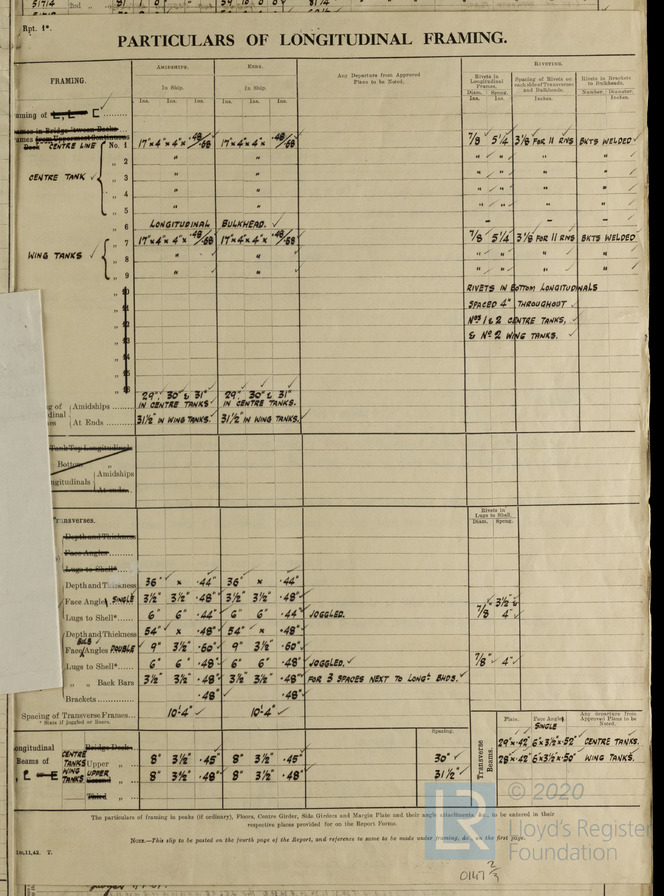 51714 2nd „ 81 1 0 59 10 0 89 81/4
Rpt. 1*.
PARTICULARS OF LONGITUDINAL FRAMING.
FRAMING. AMIDSHIPS. ENDS. Any Departure from Approved Plans to be Noted. RIVETING.
In Ship. In Ship. Rivets in Longitudinal Frames. Spacing of Rivets on each side of Transverses and Bulkheads. Rivets in Brackets to Bulkheads.
Ins. Ins. Ins. Ins. Ins. Ins. Diam. Spcng. Ins. Ins. Inches. Number. Diameter. Inches.
aming of L, L C
ames in Bridge 'tween Decks
ames from Uppermost Continuous
Deck CENTRE LINE No. 1 17"×4"×4"×.48/.68 17"×4"×4"×.48/.68 7/8 5 1/4 3 1/8 FOR 11 RIVS BKTS WELDED
„ 2 " " " " " "
CENTRE TANK „ 3 " " " " " "
„ 4 " " " " " "
„ 5 " " " " " "
„ 6 LONGITUDINAL BULKHEAD. - - -
„ 7 17"×4"×4"×.48/.68 17"×4"×4"×.48/.68 7/8 5 1/4 3 1/8 FOR 11 RIVS BKTS WELDED.
WING TANKS „ 8 " " " " " "
„ 9 " " " " " "
„ 10 RIVETS IN BOTTOM LONGITUDINALS
„ 11 SPACED 4" THROUGHOUT
„ 12 Nos 1 & 2 CENTRE TANKS,
„ 13 & No 2 WING TANKS.
„ 14
„ 15
„ 16
29", 30" & 31" 29", 30" & 31"
ng of Amidships IN CENTRE TANKS IN CENTRE TANKS.
dinal
es At Ends 31 1/2" IN WING TANKS. 31 1/2" IN WING TANKS.
Tank Top Longitudinals
Bottom „
ngitudinals Amidships
At ends
ransverses. Rivets in Lugs to Shell.
Diam. Spcng.
Depth and Thickness
Face Angles
Lugs to Shell*
Depth and Thickness 36" × .44" 36" × .44"
Face Angles SINGLE 3 1/2" 3 1/2" .48" 3 1/2" 3 1/2" .48"
Lugs to Shell* 6" 6" .44" 6" 6" .44" JOGGLED. 7/8 3 1/2" & 4"
Depth and Thickness 54" × .48" 54" × .48"
BULB
Face Angles DOUBLE 9" 3 1/2" .60" 9" 3 1/2" .60"
Lugs to Shell* 6" 6" .48" 6" 6" .48" JOGGLED. 7/8" 4"
„ „ Back Bars 3 1/2" 3 1/2" .48" 3 1/2" 3 1/2" .48" FOR 3 SPACES NEXT TO LONGL BHDS.
Brackets .48" .48"
Spacing of Transverse Frames 10'-4" 10'-4"
* State if joggled or liners.
Transverse Beams. Plate. Face Angles. SINGLE Any departure from Approved Plans to be Noted.
29"×.42" 6"×3 1/2"×.52" CENTRE TANKS.
28"×.42" 6"×3 1/2"×.50" WING TANKS.
Spacing.
ongitudinal Bridge Deck
Beams of CENTRE TANKS Upper „ 8" 3 1/2" .45" 8" 3 1/2" .45" 30"
WING TANKS UPPER Second „ 8" 3 1/2" .48" 8" 3 1/2" .48" 31 1/2"
Third „
The particulars of framing in peaks (if ordinary), Floors, Centre Girder, Side Girders and Margin Plate and their angle attachments, &c., to be entered in their
respective places provided for on the Report Forms.
NOTE.—This slip to be pasted on the fourth page of the Report, and reference to same to be made under framing, &c., on the first page.
1m,11,42. T.
0147 2/3
LR
© 2020
Lloyd's Register
Foundation